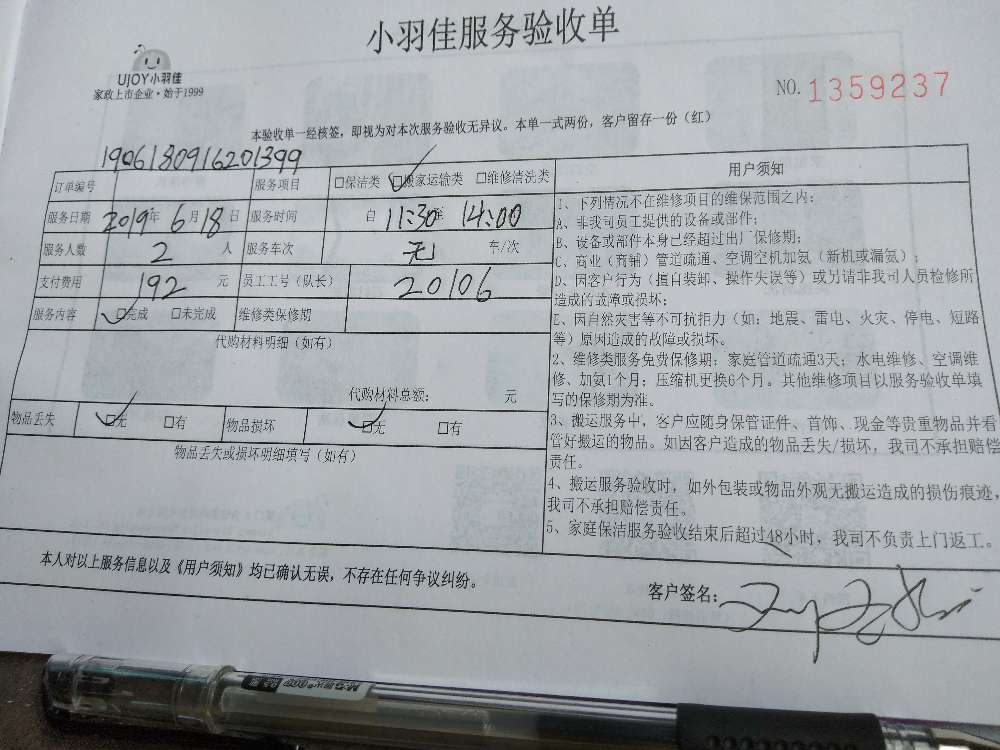 小羽佳服务验收单
UJOY小羽佳
家政上市企业·始于1999
NO. 1359237
本验收单一经核签，即视为对本次服务验收无异议。本单一式两份，客户留存一份（红）
订单编号 1906180916201399 服务项目 □保洁类 □搬家运输类 □维修清洗类
服务日期 2019年 6月18日 服务时间 自 11:30 14:00
服务人数 2 人 服务车次 无 车/次
支付费用 192 元 员工工号（队长） 20106
服务内容 □完成 □未完成 维修类保修期
代购材料明细（如有）
代购材料总额： 元
物品丢失 □无 □有 物品损坏 □无 □有
物品丢失或损坏明细填写（如有）
用户须知
1、下列情况不在维修项目的维保范围之内：
A、非我司员工提供的设备或部件；
B、设备或部件本身已经超过出厂保修期；
C、商业（商铺）管道疏通、空调空机加氨（新机或漏氨）；
D、因客户行为（擅自装卸、操作失误等）或另请非我司人员检修所
造成的故障或损坏；
E、因自然灾害等不可抗拒力（如：地震、雷电、火灾、停电、短路
等）原因造成的故障或损坏。
2、维修类服务免费保修期：家庭管道疏通3天；水电维修、空调维
修、加氨1个月；压缩机更换6个月。其他维修项目以服务验收单填
写的保修期为准。
3、搬运服务中，客户应随身保管证件、首饰、现金等贵重物品并看
管好搬运的物品。如因客户造成的物品丢失/损坏，我司不承担赔偿
责任。
4、搬运服务验收时，如外包装或物品外观无搬运造成的损伤痕迹，
我司不承担赔偿责任。
5、家庭保洁服务验收结束后超过48小时，我司不负责上门返工。
本人对以上服务信息以及《用户须知》均已确认无误，不存在任何争议纠纷。
客户签名：